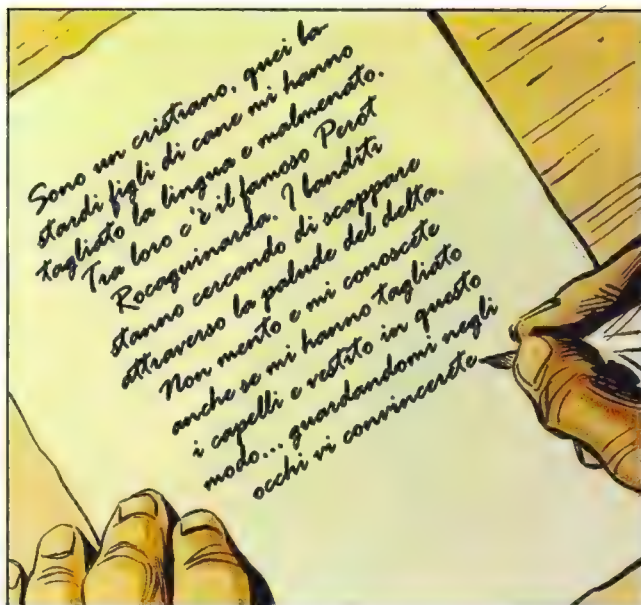 Sono un cristiano, quei ba-
stardi figli di cane mi hanno
tagliato la lingua e malmenato.
Tra loro c'è il famoso Perot
Rocaguinarda. I banditi
stanno cercando di scappare
attraverso la palude del delta.
Non mento e mi conoscete
anche se mi hanno tagliato
i capelli e vestito in questo
modo... guardandomi negli
occhi vi convincerete